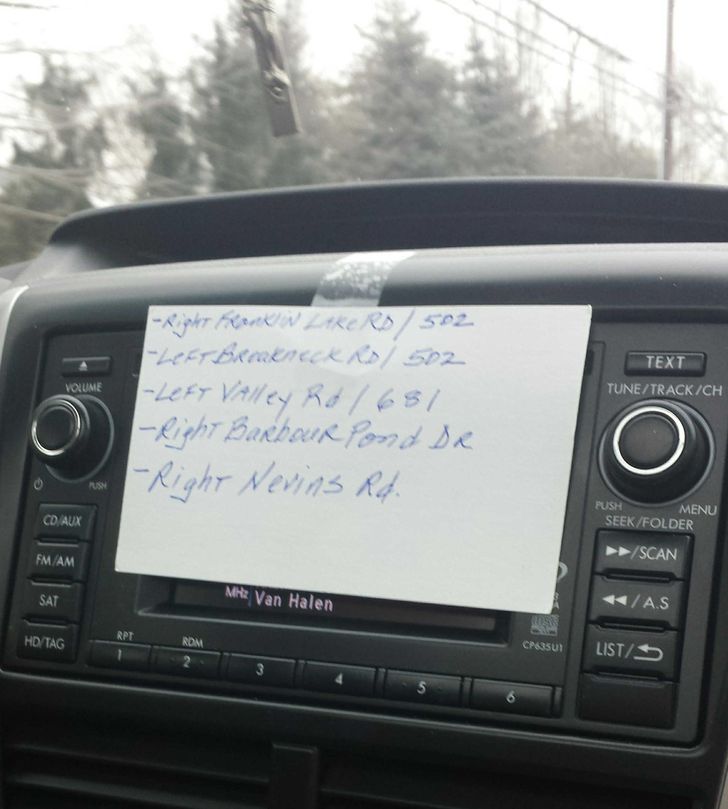 -Right Franklin Lake RD / 502
-Left Breakneck RD / 502
-Left Valley Rd / 681
-Right Barbour Pond DR
-Right Nevins Rd.
VOLUME
PUSH
CD/AUX
FM/AM
SAT
HD/TAG
TEXT
TUNE/TRACK/CH
PUSH
MENU
SEEK/FOLDER
▶▶/SCAN
◀◀/A.S
LIST/
MHz Van Halen
CP635U1
RPT
RDM
1
2
3
4
5
6